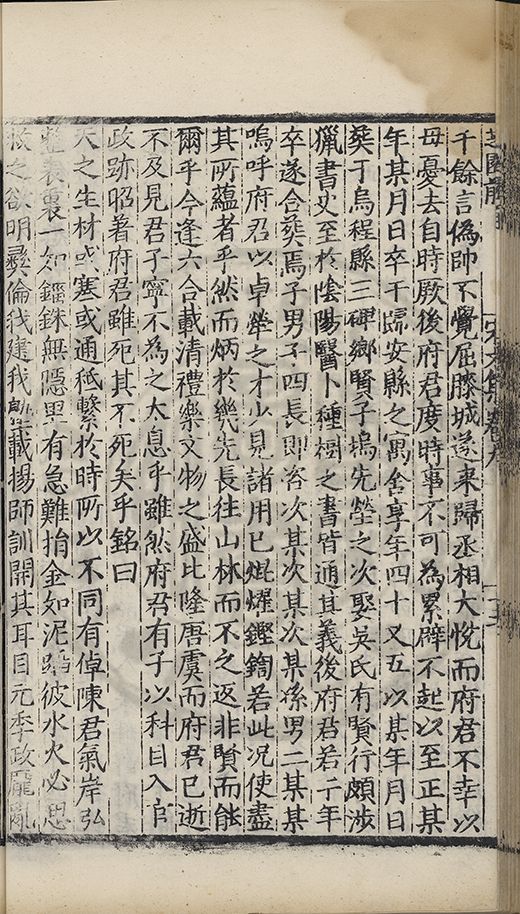 芝園前
宋文集卷九
千餘言偽帥不覺屈膝城遂來歸丞相大悅而府君不幸以
母憂去自時厥後府君度時事不可為累辟不起以至正某
年某月日卒于歸安縣之寓舍享年四十又五以某年月日
葬于烏程縣三碑鄉賢子塢先塋之次娶吳氏有賢行頗涉
獵書史至於陰陽醫卜種樹之書皆通其義後府君若干年
卒遂合葬焉子男子四長即咨次某次某次某孫男二某某
嗚呼府君以卓犖之才少見諸用已焜燿鏗鍧若此况使盡
其所蘊者乎然而炳於幾先長往山林而不之返非賢而能
爾乎今逢六合載清禮樂文物之盛比隆唐虞而府君已逝
不及見君子寧不為之太息乎雖然府君有子以科目入官
政跡昭著府君雖死其不死矣乎銘曰
天之生材或塞或通秪繫於時所以不同有倬陳君氣岸弘
表裏一如錙銖無隱里有急難捐金如泥蹈彼水火必思
救之欲明彝倫我建我載揚師訓開其耳目元季政龐亂